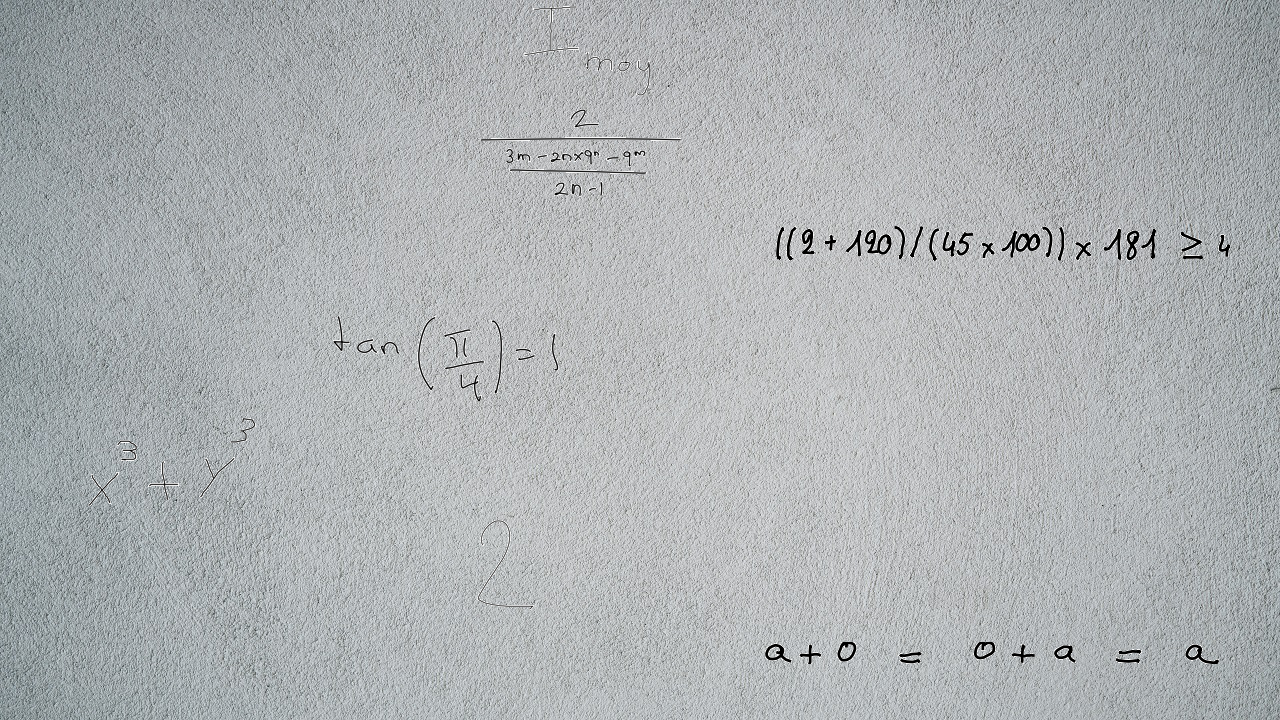 I_{moy}
\frac{2}{\frac{3m-2n×9^n-9^m}{2n-1}}
((2+120)/(45×100))×181 ≥ 4
tan(\frac{π}{4})=1
x^3+y^3
2
a+0 = 0+a = a